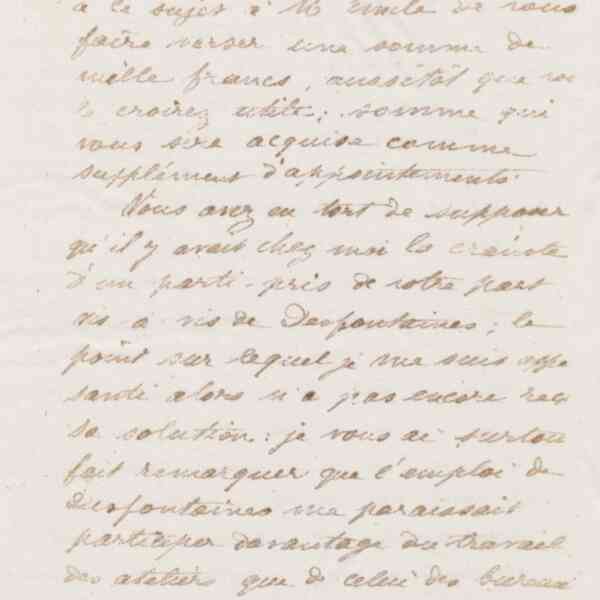 à ce sujet à M Emile de vous
faire verser une somme de
mille francs, aussitôt que vo
le croirez utile; somme qui
vous sera acquise comme
supplément d'appointements.
Vous avez eu tort de supposer
qu'il y avait chez moi la crainte
d'un parti-pris de votre part
vis à vis de Desfontaines; le
point sur lequel je me suis appe
santi alors n'a pas encore reçu
sa solution: je vous ai surtou
fait remarquer que l'emploi de
Desfontaines me paraissait
participer davantage du travail
des ateliers que de celui des bureaux